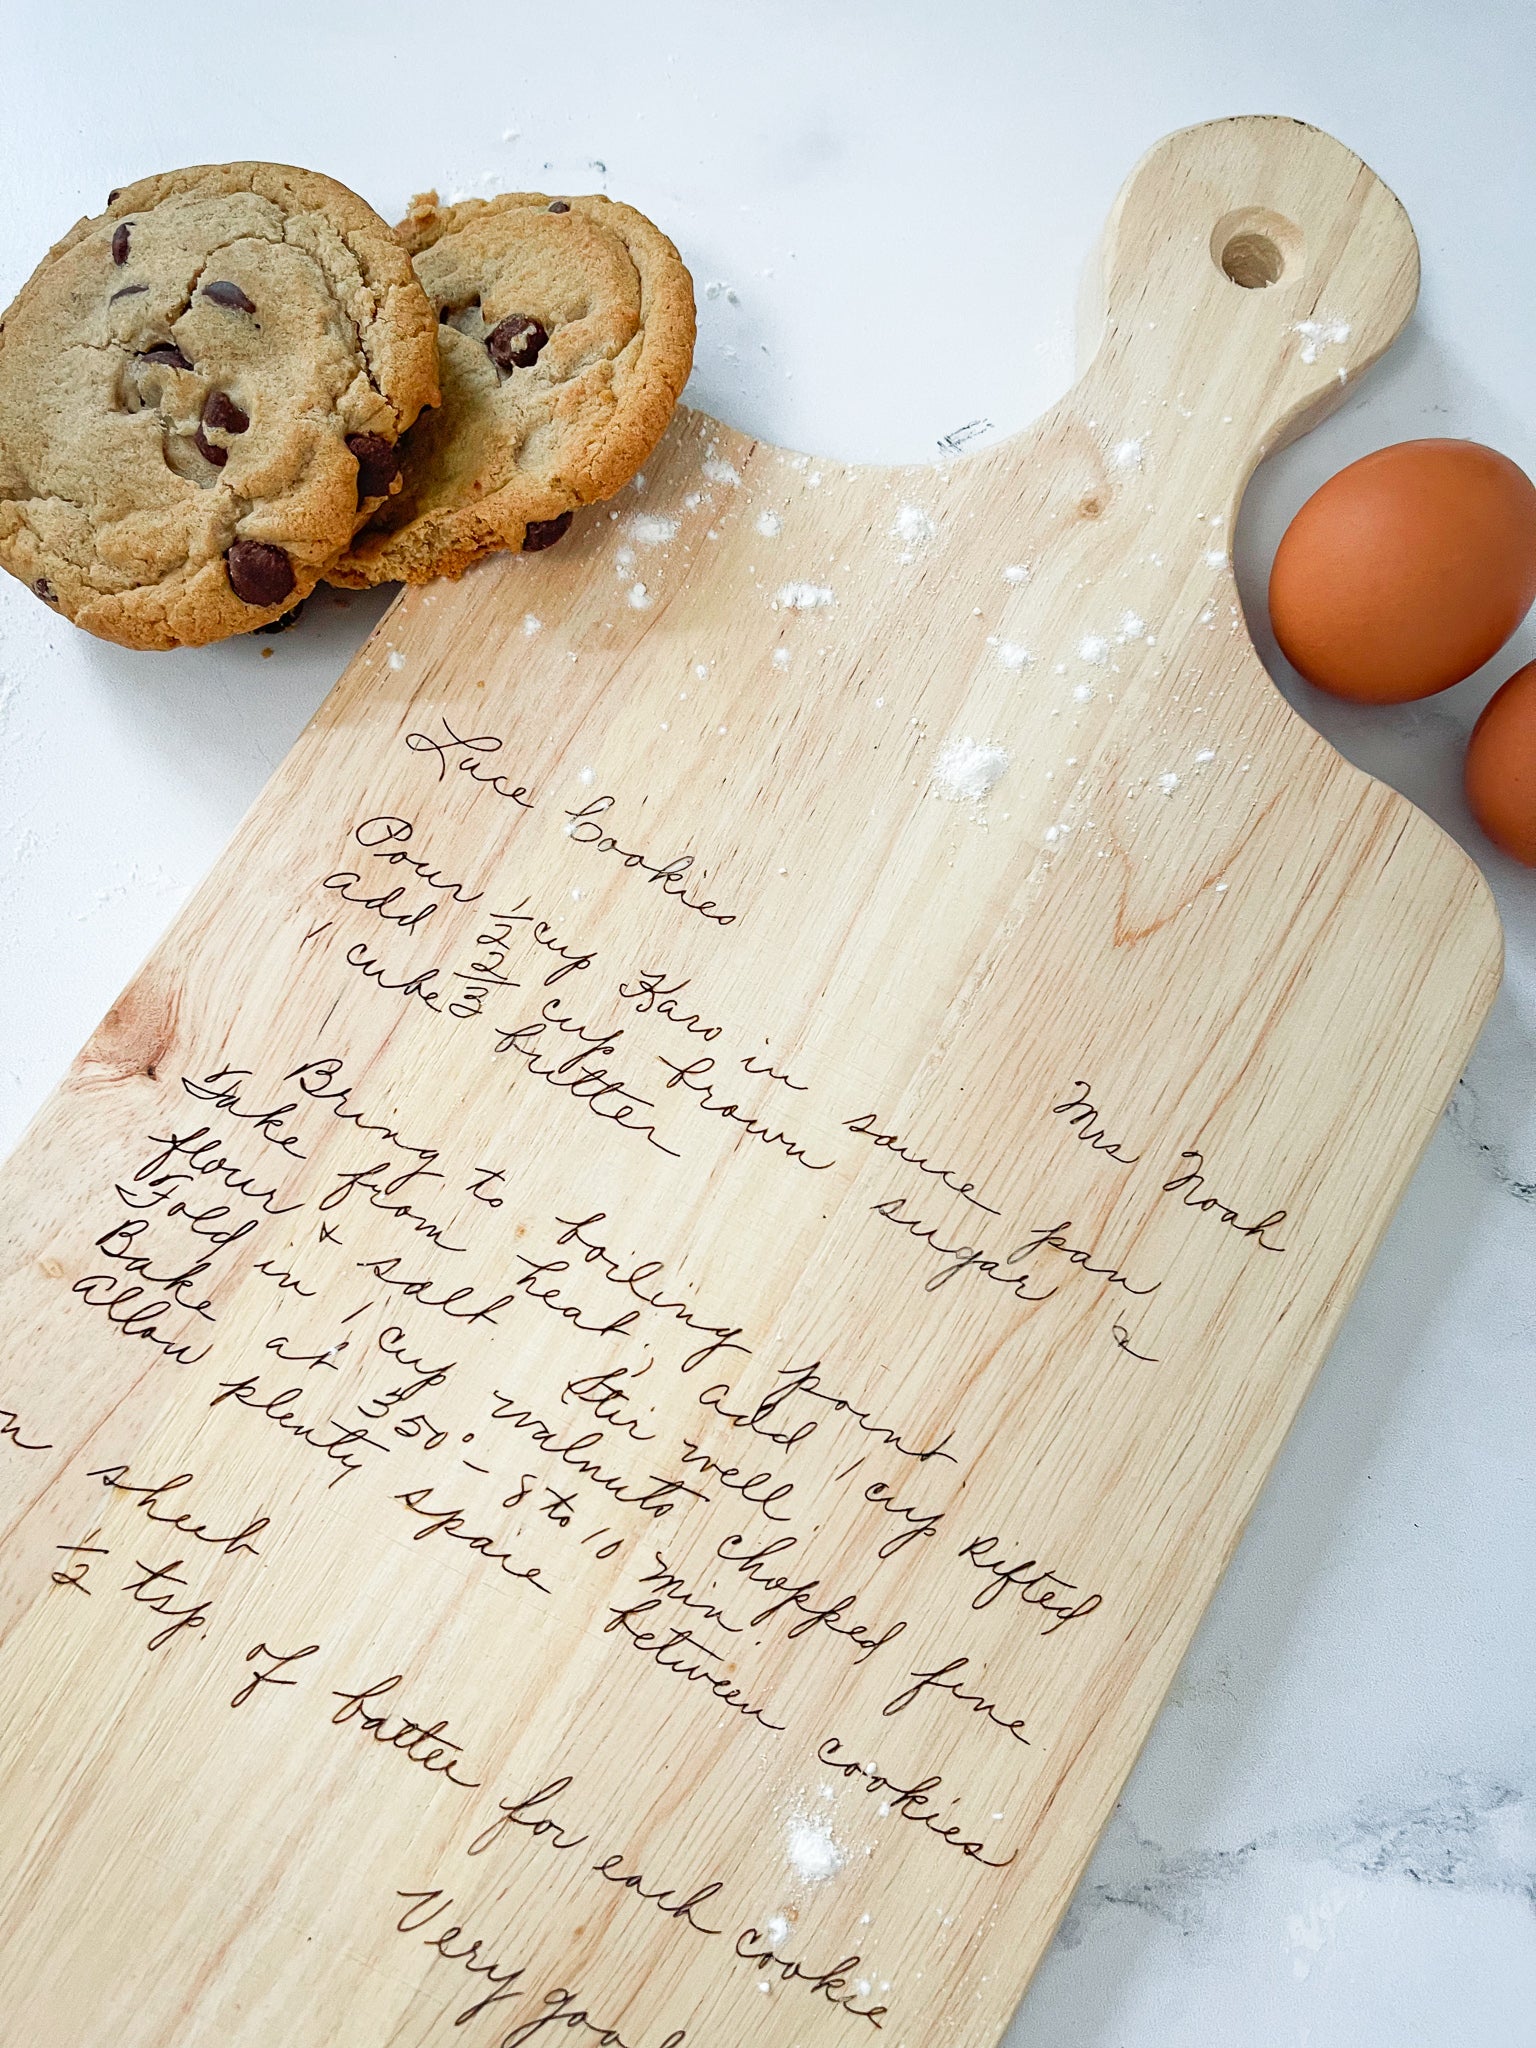 Lace Cookies
Mrs Noah
Pour 1/2 cup Karo in sauce pan &
add 2/3 cup brown sugar
1 cube butter
Bring to boiling point
Take from heat, add 1 cup sifted
flour & salt Stir well.
Fold in 1 cup walnuts chopped fine.
Bake at 350° - 8 to 10 min.
Allow plenty space between cookies
sheet
1/2 tsp. of batter for each cookie
Very good